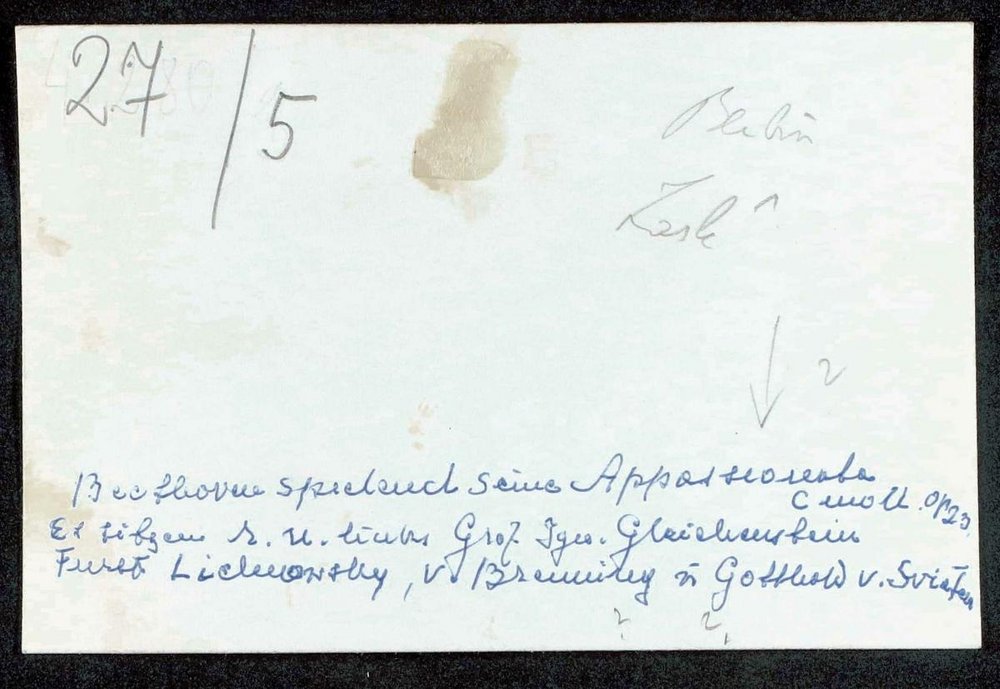 27/5
Berlin
?
Beethoven spielend seine Appassionata
C moll. op 23.
Es sitzen r. n. links Graf Ign. Gleichenstein
Furst Lichnowsky, v. Breuning u Gotthold v. Svieten
? ?